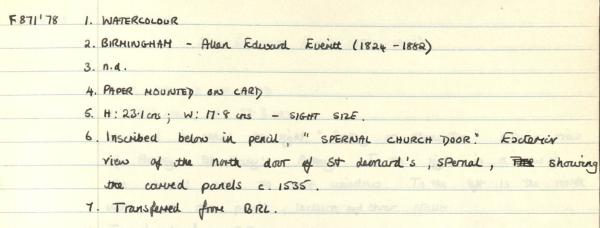 F871'78 1. WATERCOLOUR
2. BIRMINGHAM - Allen Edward Everitt (1824 - 1882)
3. n.d.
4. PAPER MOUNTED ON CARD
5. H: 23.1cms; W: 17.8 cms - SIGHT SIZE.
6. Inscribed below in pencil, "SPERNAL CHURCH DOOR". Exterior
view of the north door of St Leonard's, Spernal, showing
the carved panels c. 1535.
7. Transferred from BRL.